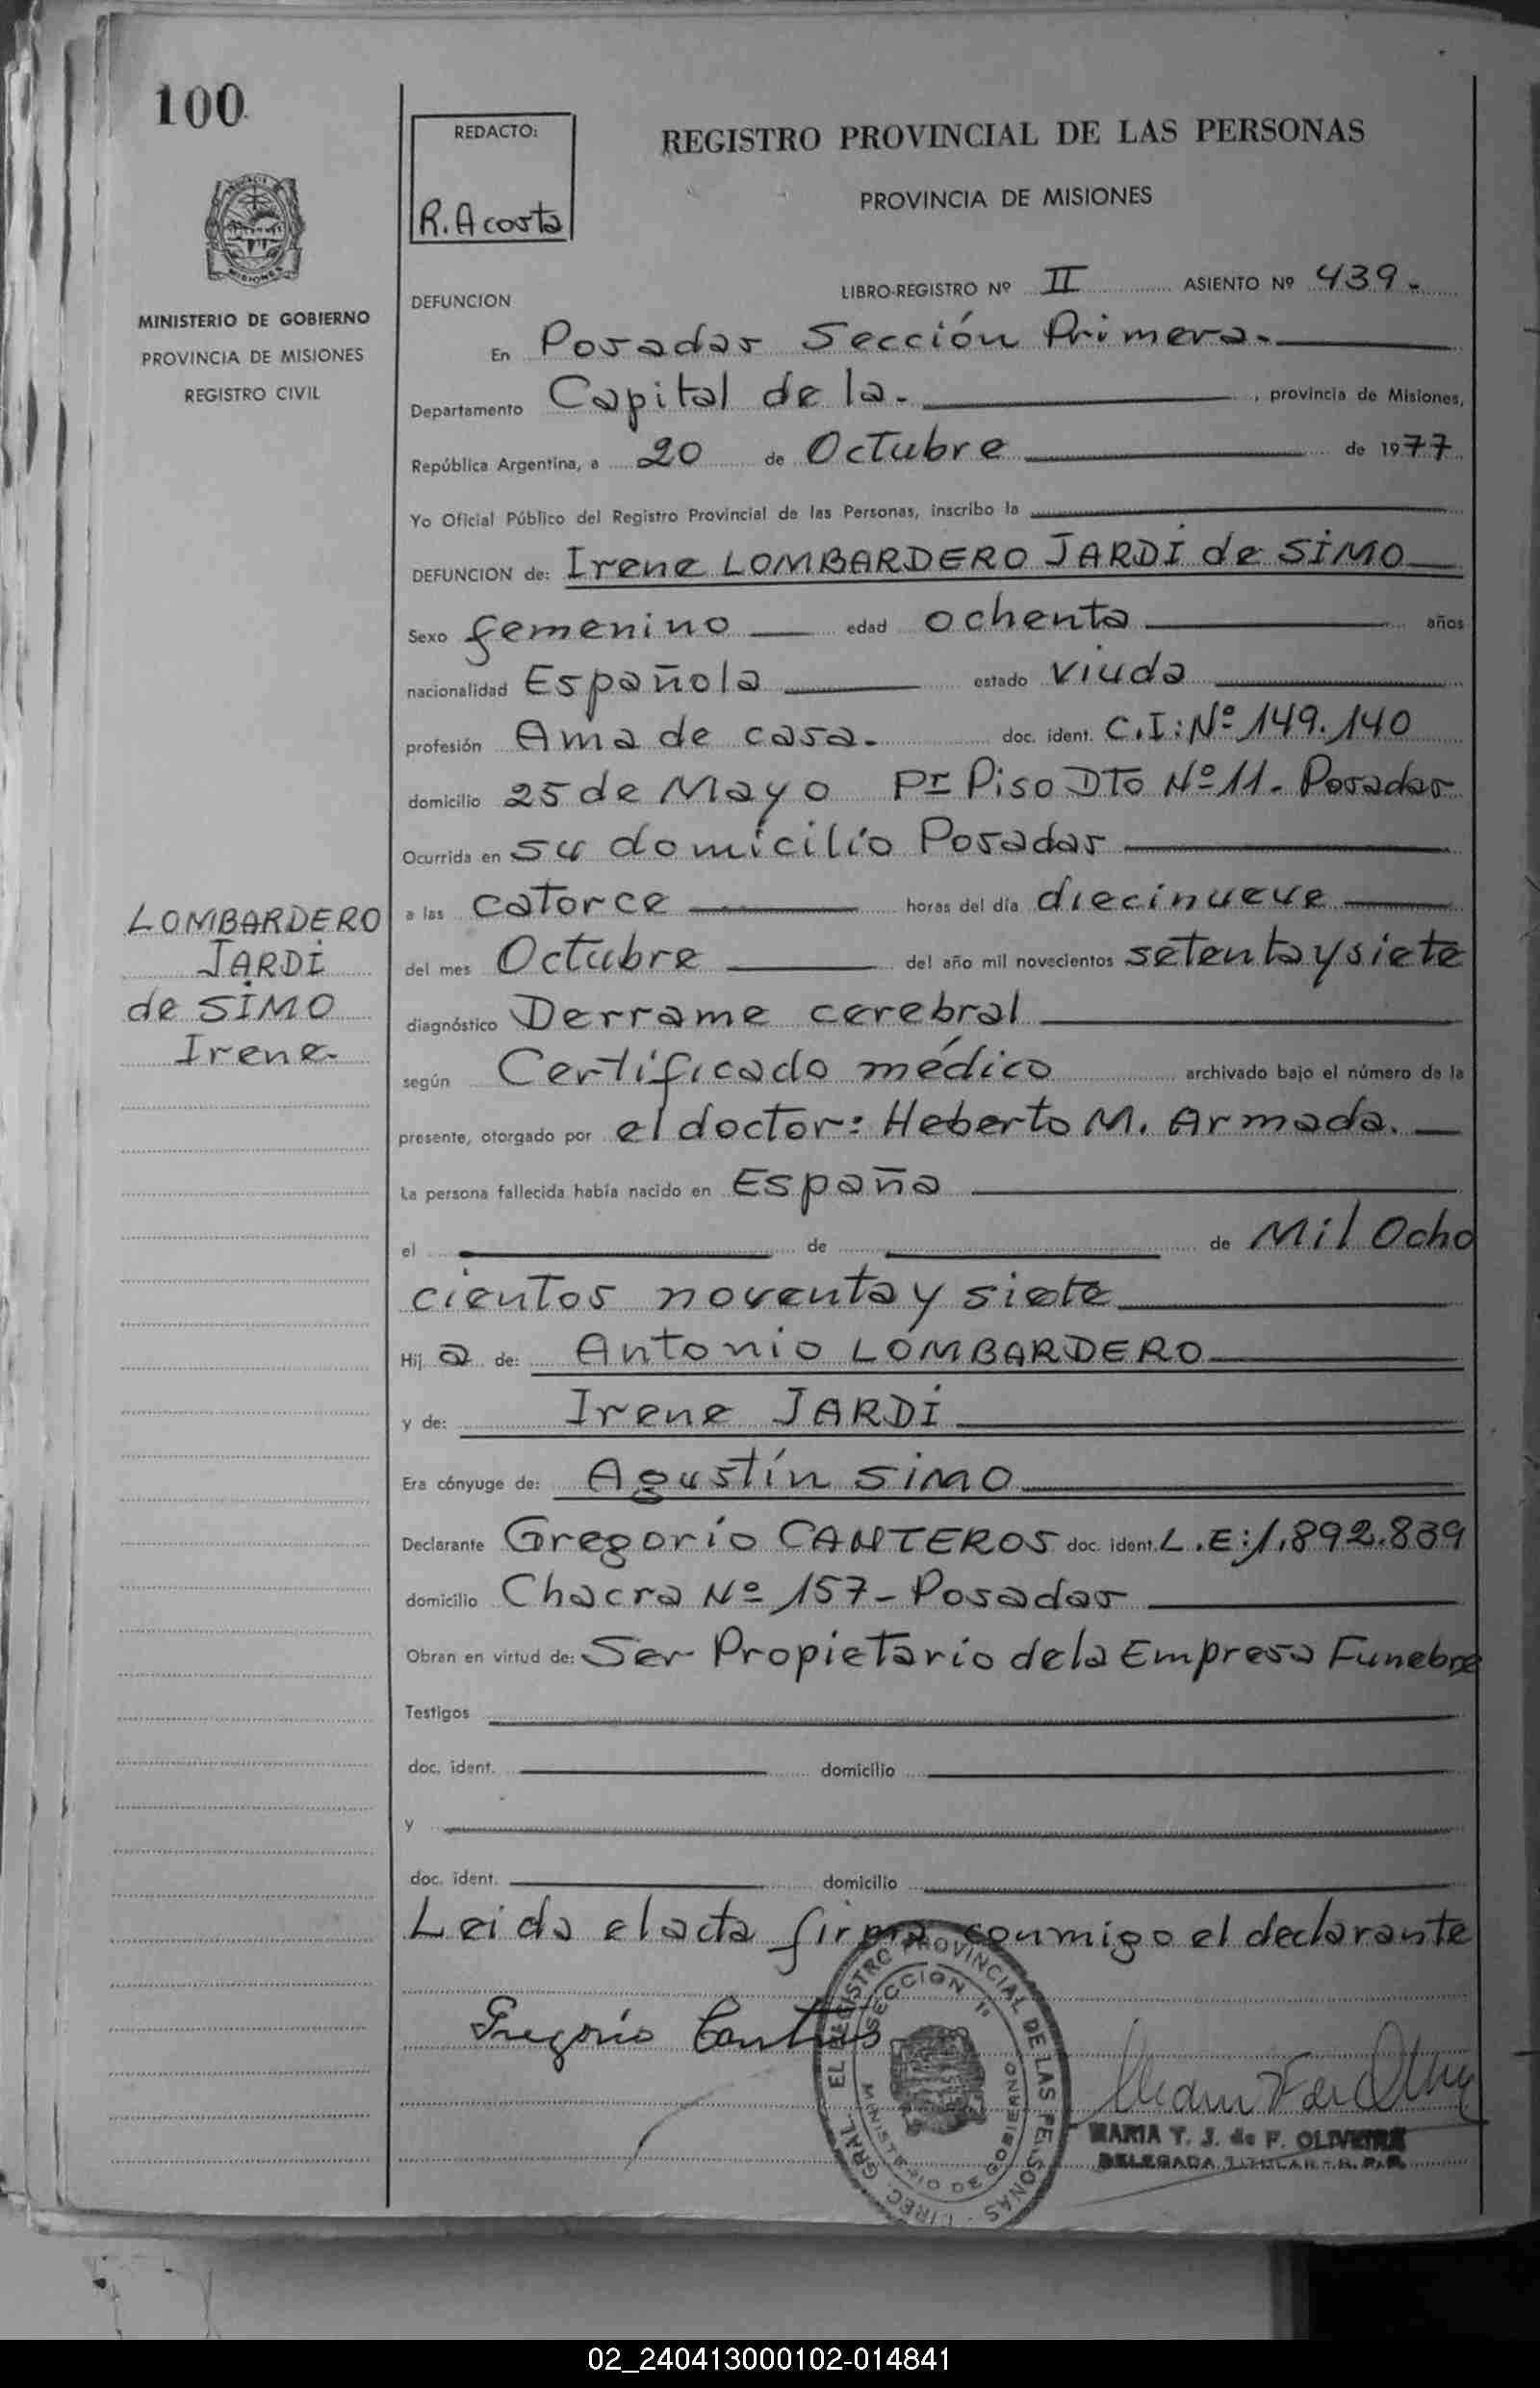 100
REDACTO:
R. Acosta
REGISTRO PROVINCIAL DE LAS PERSONAS
PROVINCIA DE MISIONES
MISIONES
MINISTERIO DE GOBIERNO
PROVINCIA DE MISIONES
REGISTRO CIVIL
LIBRO-REGISTRO Nº II ASIENTO Nº 439.
DEFUNCION
En Posadas Sección Primera.
Departamento Capital de la. , provincia de Misiones,
República Argentina, a 20 de Octubre de 1977
Yo Oficial Público del Registro Provincial de las Personas, inscribo la
DEFUNCION de: Irene LOMBARDERO JARDÍ de SIMO
Sexo femenino edad ochenta años
nacionalidad Española estado viuda
profesión Ama de casa. doc. ident. C.I: Nº 149.140
domicilio 25 de Mayo Pr Piso DTO Nº 11. Posadas
Ocurrida en su domicilio Posadas
a las catorce horas del día diecinueve
del mes Octubre del año mil novecientos setenta y siete
diagnóstico Derrame cerebral
según Certificado médico archivado bajo el número de la
presente, otorgado por el doctor: Heberto M. Armada.
La persona fallecida había nacido en España
el de de Mil Ocho
cientos noventa y siete
Hij a de: Antonio LOMBARDERO
y de: Irene JARDÍ
Era cónyuge de: Agustín SIMO
Declarante Gregorio CANTEROS doc. ident. L.E: 1.892.839
domicilio Chacra Nº 157- Posadas
Obran en virtud de: Ser Propietario de la Empresa Funebre
Testigos
doc. ident. domicilio
y
doc. ident. domicilio
Leida el acta firma conmigo el declarante
LOMBARDERO
JARDÍ
de SIMO
Irene.
Gregorio Canteros
DIREC. GRAL. EL REGISTRO PROVINCIAL DE LAS PERSONAS
SECCION 1ª
MINISTERIO DE GOBIERNO
MARIA T. J. de F. OLIVEIRA
DELEGADA TITULAR - R. P. P.
02_240413000102-014841